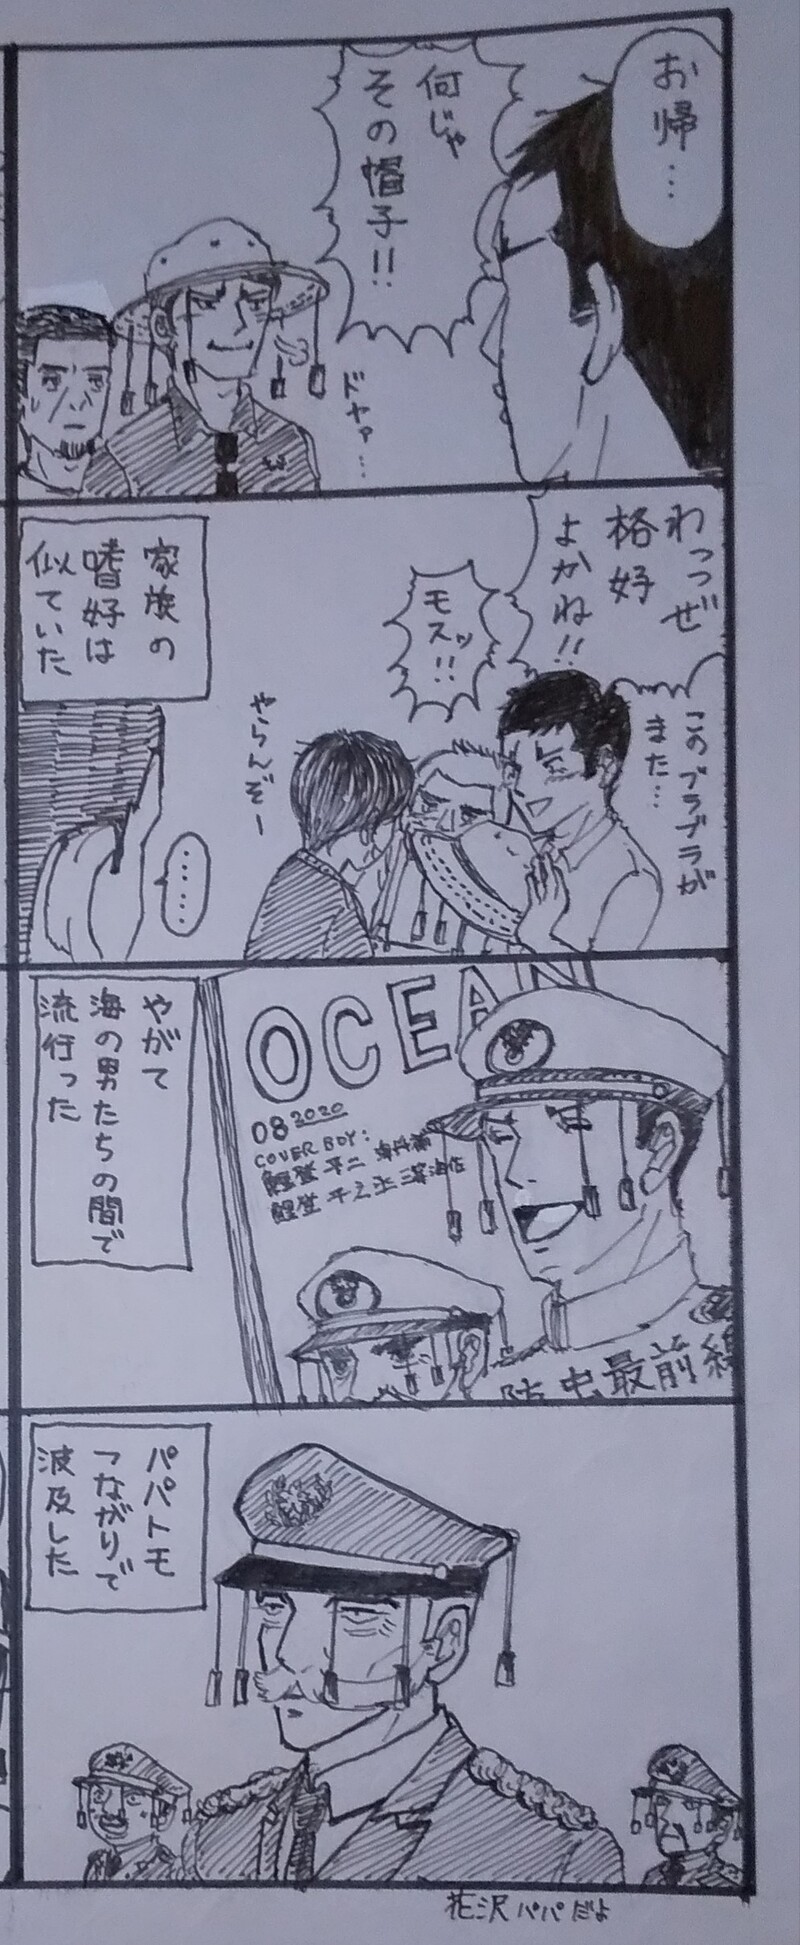 お帰…
何じゃ
その帽子!!
ドヤァ…
わっつぜ
格好
よかね!!
このブラブラが
また…
モスッ!!
やらんぞー
家族の
嗜好は
似ていた
……
OCEAN
08 2020
COVER BOY:
鯉登 平二
鯉登 平之丞
防虫最前線
やがて
海の男たちの間で
流行った
パパトモ
つながりで
波及した
花沢パパだよ